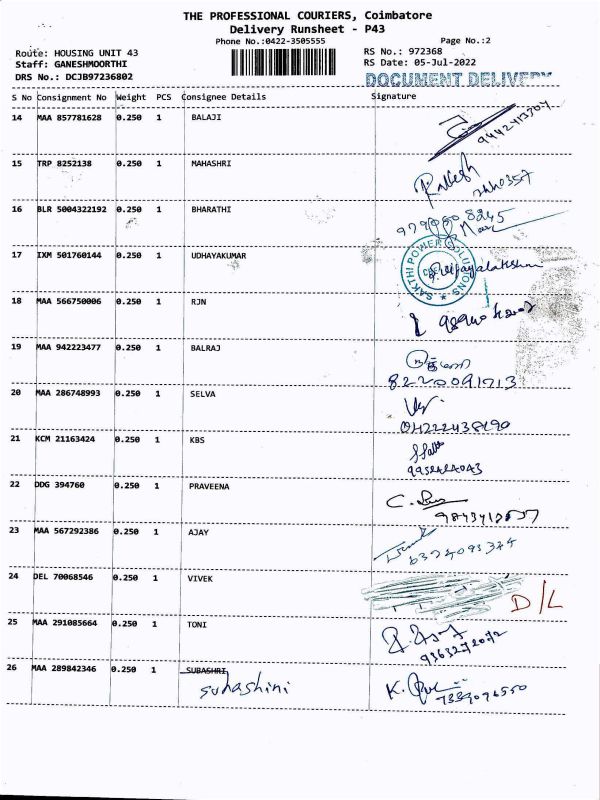 THE PROFESSIONAL COURIERS, Coimbatore
Delivery Runsheet - P43
Phone No.:0422-3505555
Page No.:2
Route: HOUSING UNIT 43
RS No.: 972368
Staff: GANESHMOORTHI
RS Date: 05-Jul-2022
DRS No.: DCJB97236802
DOCUMENT DELIVERY
S No Consignment No Weight PCS Consignee Details Signature
14 MAA 857781628 0.250 1 BALAJI
15 TRP 8252138 0.250 1 MAHASHRI
16 BLR 5004322192 0.250 1 BHARATHI
17 IXM 501760144 0.250 1 UDHAYAKUMAR
SAKTHI POWER SOLUTIONS
18 MAA 566750006 0.250 1 RJN
19 MAA 942223477 0.250 1 BALRAJ
20 MAA 286748993 0.250 1 SELVA
21 KCM 21163424 0.250 1 KBS
22 DDG 394760 0.250 1 PRAVEENA
23 MAA 567292386 0.250 1 AJAY
24 DEL 70068546 0.250 1 VIVEK D/L
25 MAA 291085664 0.250 1 TONI
26 MAA 289842346 0.250 1 SUBASHRI
suhashini